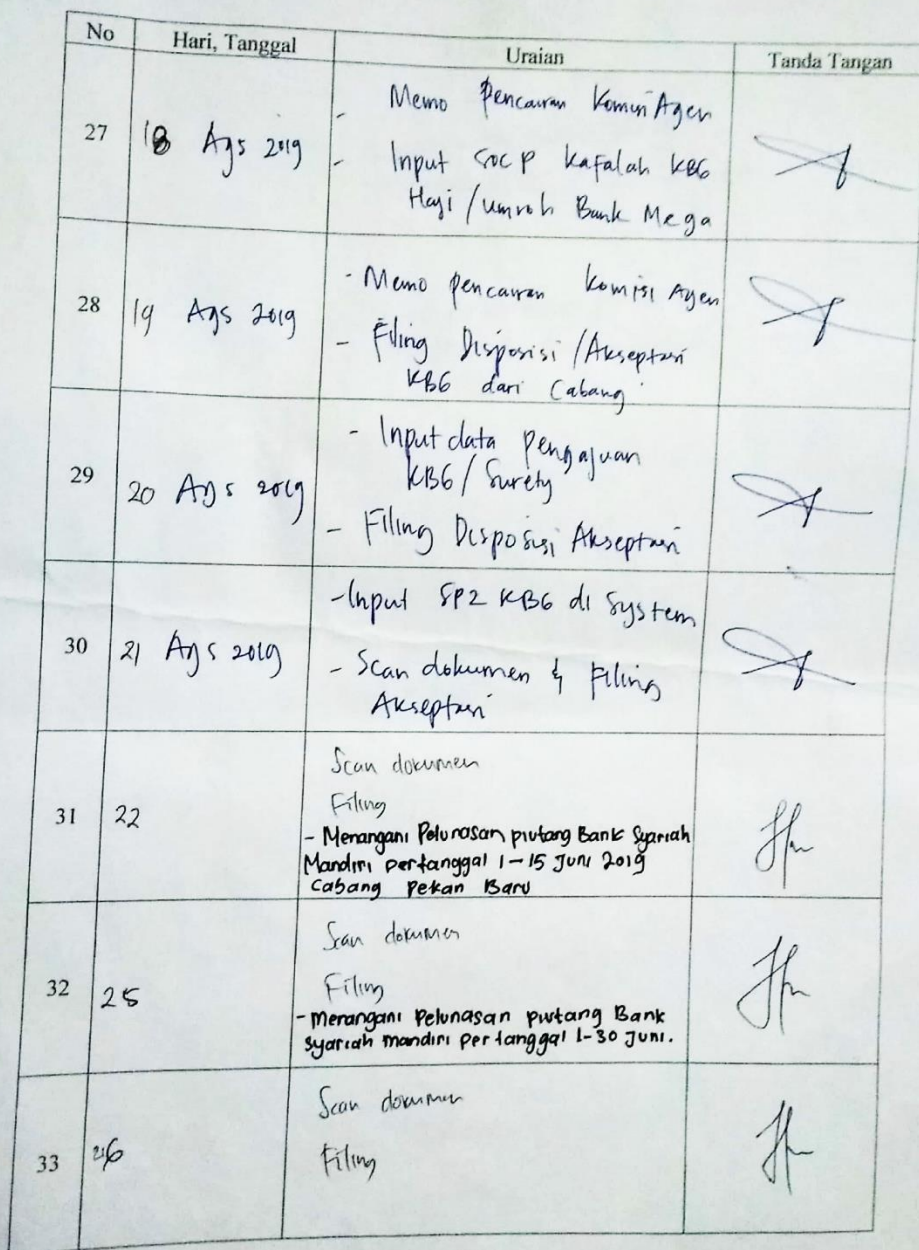 No Hari, Tanggal Uraian Tanda Tangan
27 18 Ags 2019
- Memo Pencairan Komisi Agen
- Input SOC P Kafalah KBG
Haji / Umroh Bank Mega
28 19 Ags 2019
- Memo Pencairan Komisi Agen
- Filing Disposisi / Akseptasi
KBG dari Cabang
29 20 Ags 2019
- Input data Pengajuan
KBG / Surety
- Filing Disposisi Akseptasi
30 21 Ags 2019
- Input SP2 KBG di System
- Scan dokumen & Filing
Akseptasi
31 22
Scan dokumen
Filing
- Menangani Pelunasan piutang Bank Syariah
Mandiri pertanggal 1-15 Juni 2019
Cabang Pekan Baru
32 25
Scan dokumen
Filing
- Menangani Pelunasan piutang Bank
Syariah mandiri pertanggal 1-30 Juni.
33 26
Scan dokumen
Filing